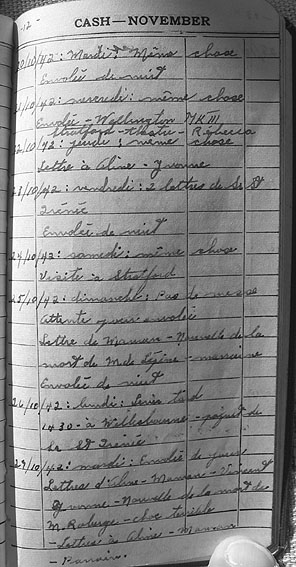 -12-
CASH—NOVEMBER
20/10/42: Mardi: Même chose
Envolée de nuit
21/10/42: mercredi: même chose
Envolée - Wellington MK III
Stratford - théâtre - Rebecca
22/10/42: jeudi: même chose
Lettre à Aline - Yvonne
23/10/42: vendredi: 2 lettres de St
Irénée
Envolée de nuit
24/10/42: samedi: même chose
Visite à Stratford
25/10/42: dimanche: Pas de messe
Attente pour envolée
Lettre de Maman - Nouvelle de la
mort de M. de Lépine - marraine
Envolée de nuit
26/10/42: lundi: Levés tard
1430 - à Wellesbourne - paquet de
la St Irénée
27/10/42: mardi: Envolée de jour
Lettres d'Aline - Maman - Vincent
Yvonne - Nouvelle de la mort de
M. Roberge - choc terrible
- Lettres à Aline - Maman
- Parrain.